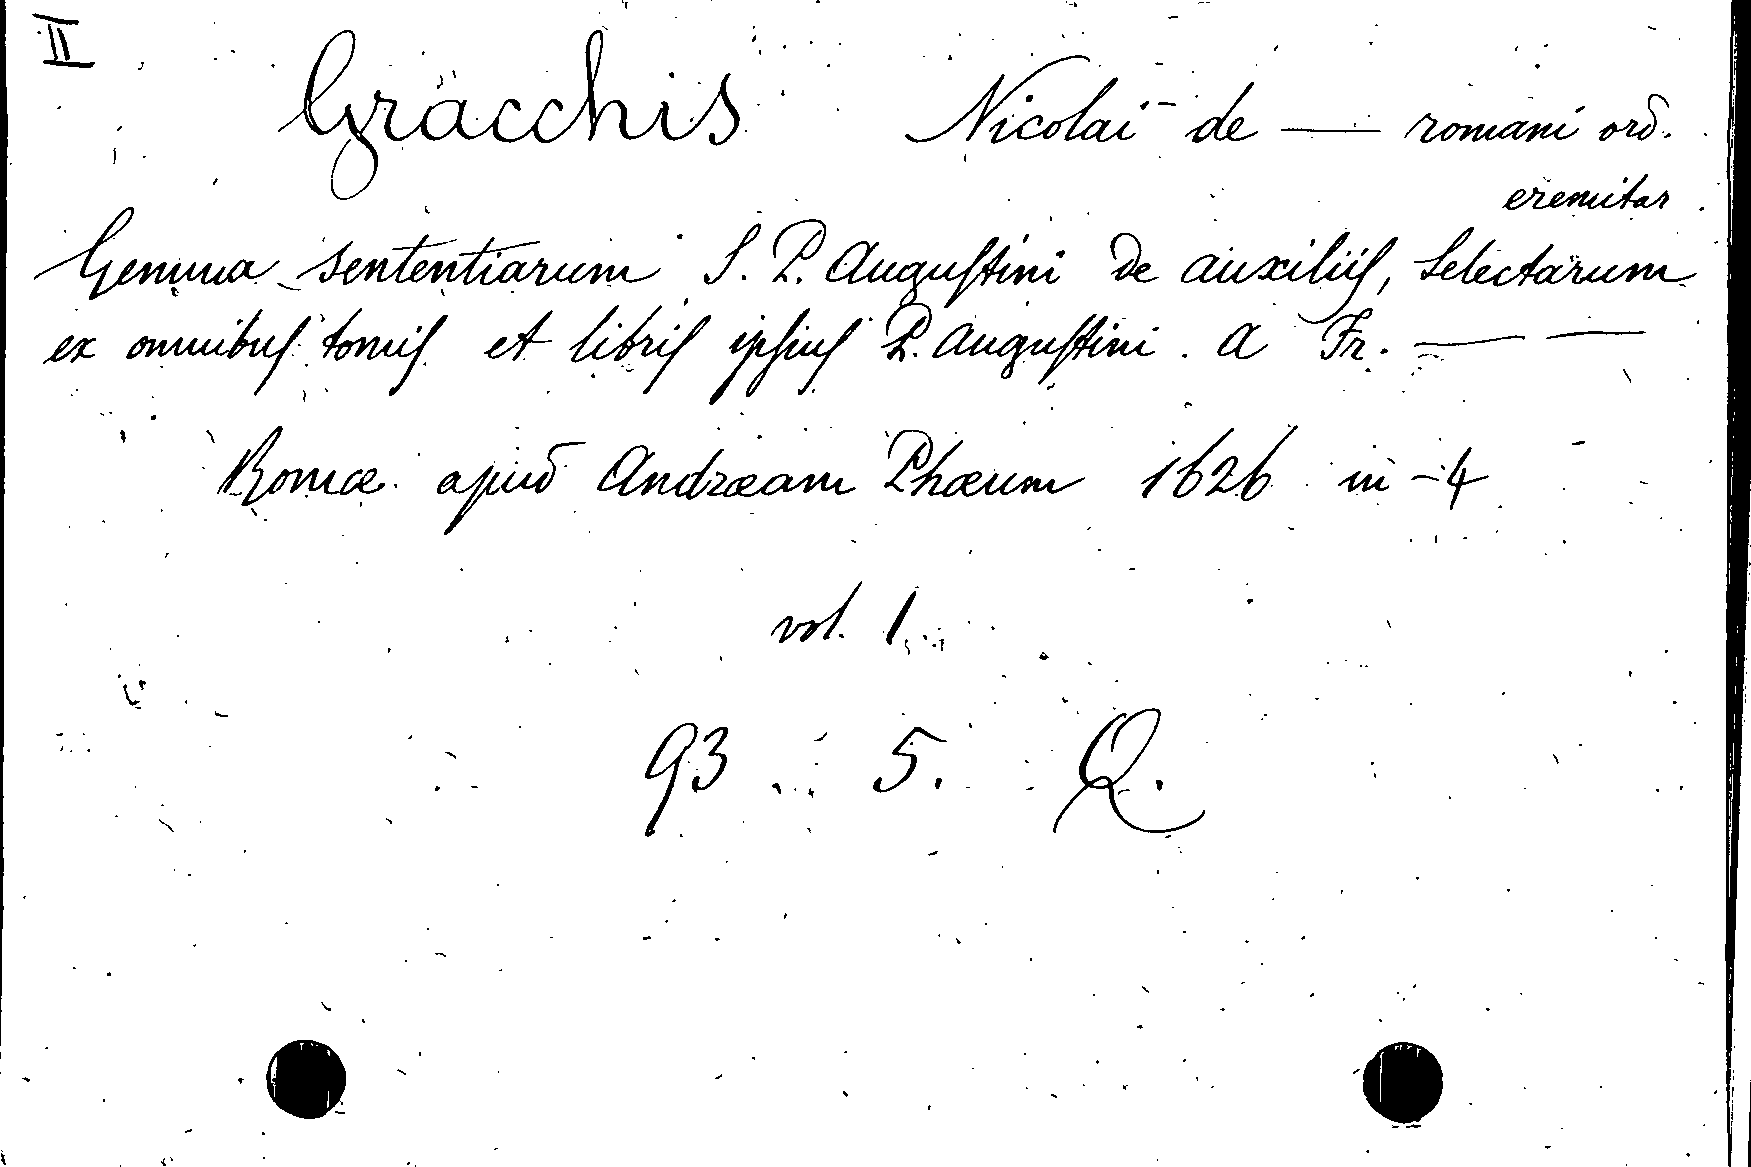 II
Gracchis Nicolai de — romani ord.
eremitar.
Gemma sententiarum S. P. Augustini de auxiliis, selectarum
ex omnibus tomis et libris ipsius P. Augustini. a Fr. — —
Romæ apud Andræam Phæum 1626 in-4
vol. 1.
93 5. Q.